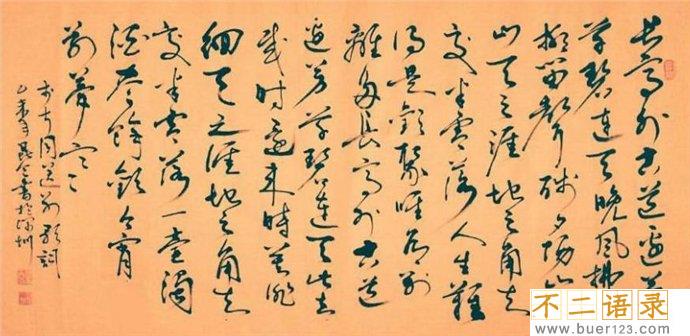 长亭外古道邊芳
草碧連天晚风拂
柳笛聲残夕陽山
山天之涯地之角知
交半零落人生難
得是歓聚唯有别
離多長亭外古道
邊芳草碧連天此去
幾时还来时莫徘
徊天之涯地之角知
交半零落一壶濁
酒尽餘歓今宵
别夢寒
李叔同送别歌詞
乙未年書於深圳
不二语录
www.buer123.com